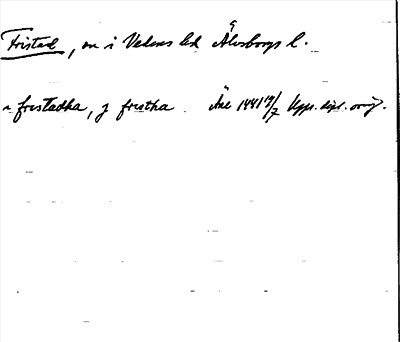 Fristad, sn i Vedens hd Älvsborgs l.
i fristadha, j fristha Äke 1441 14/7 Upps. dipl. orig.